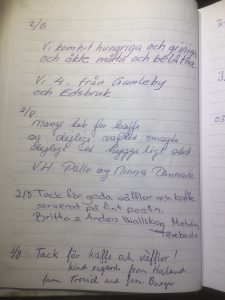 2/8
Vi kom hit hungriga och griniga
och åkte mätta och belåtna.
Vi 4. från Gamleby
och Edsbruk
2/8
Mange tak for kaffe
og dejlig vafler smagte
dejligt et hyggeligt sted
V.H Palle og Minna Danmark
2/8 Tack för goda våfflor och kaffe
serverat på fint porslin.
Britta & Anders Wallskog Moholm
Töreboda
3/8 Tack för kaffe och våfflor!
kind regards from Holland
fam and fam Burger